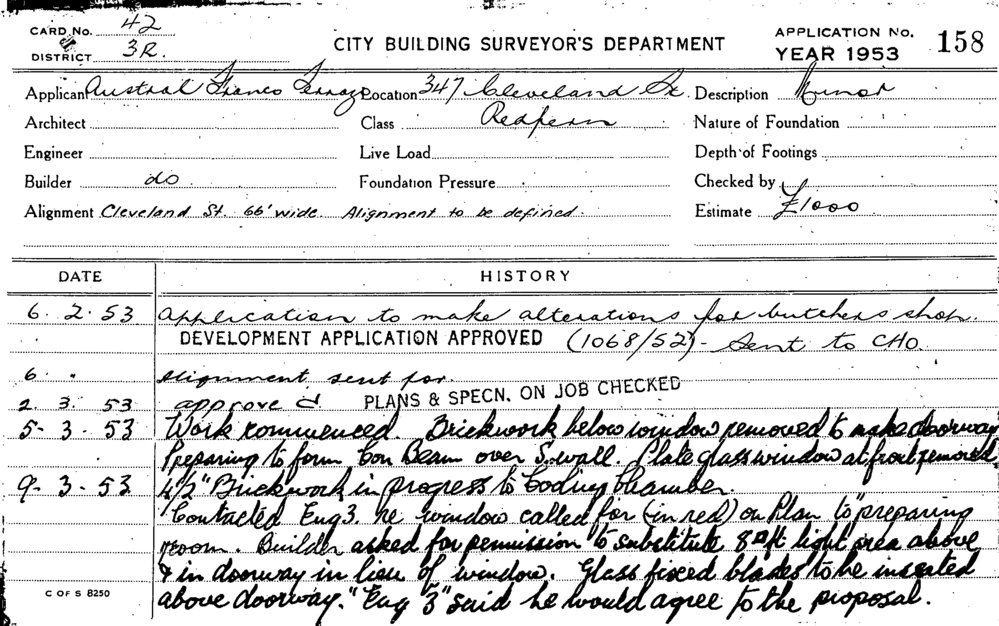 CARD No. 42
DISTRICT 3R.
CITY BUILDING SURVEYOR'S DEPARTMENT
APPLICATION No. 158
YEAR 1953
Applicant Austral Franco Terrazo Location 347 Cleveland St. Description Minor
Architect Class Redfern Nature of Foundation
Engineer Live Load Depth of Footings
Builder do Foundation Pressure Checked by
Alignment Cleveland St. 66' wide. Alignment to be defined. Estimate £1000
DATE HISTORY
6. 2. 53 Application to make alterations for butchers shop.
DEVELOPMENT APPLICATION APPROVED (1068/52) - Sent to CHO.
6. " Alignment sent for.
2. 3. 53 approved PLANS & SPECN. ON JOB CHECKED
5- 3- 53 Work commenced. Brickwork below window removed to make doorway
Preparing to form Con Beam over S. wall. Plate glass window at front removed.
9- 3- 53 4½" Brickwork in progress to Cooling Chamber.
"Contacted Eng 3. re window called for (in red) on Plan to "preparing
room. Builder asked for permission to substitute 8 sq ft light area above
& in doorway in lieu of window. Glass fixed blades to be inserted
above doorway." "Eng 3" said he would agree to the proposal.
C OF S 8250